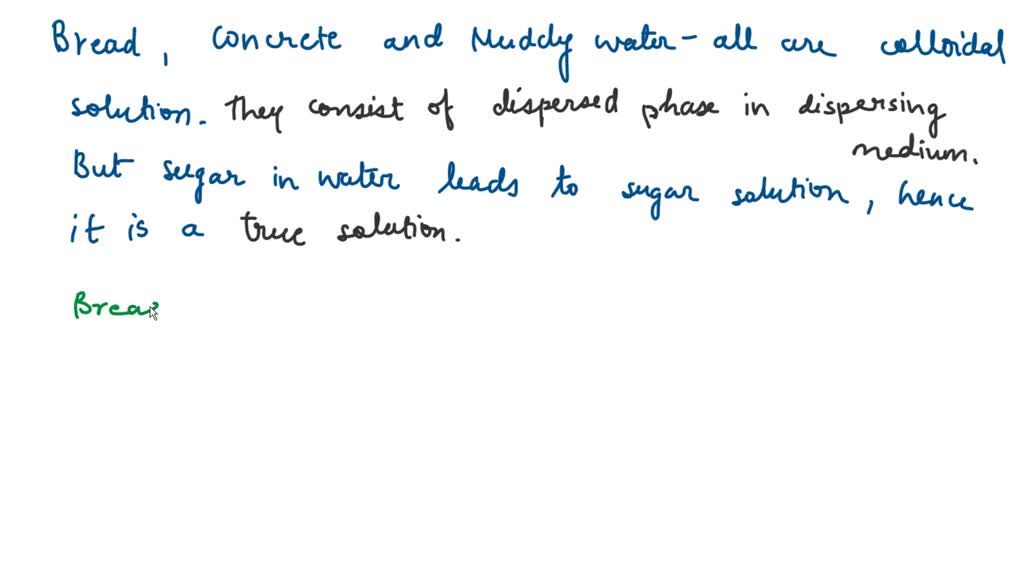 Bread, concrete and Muddy water - all are colloidal
solution. They consist of dispersed phase in dispersing
medium.
But sugar in water leads to sugar solution, hence
it is a true solution.
Brea